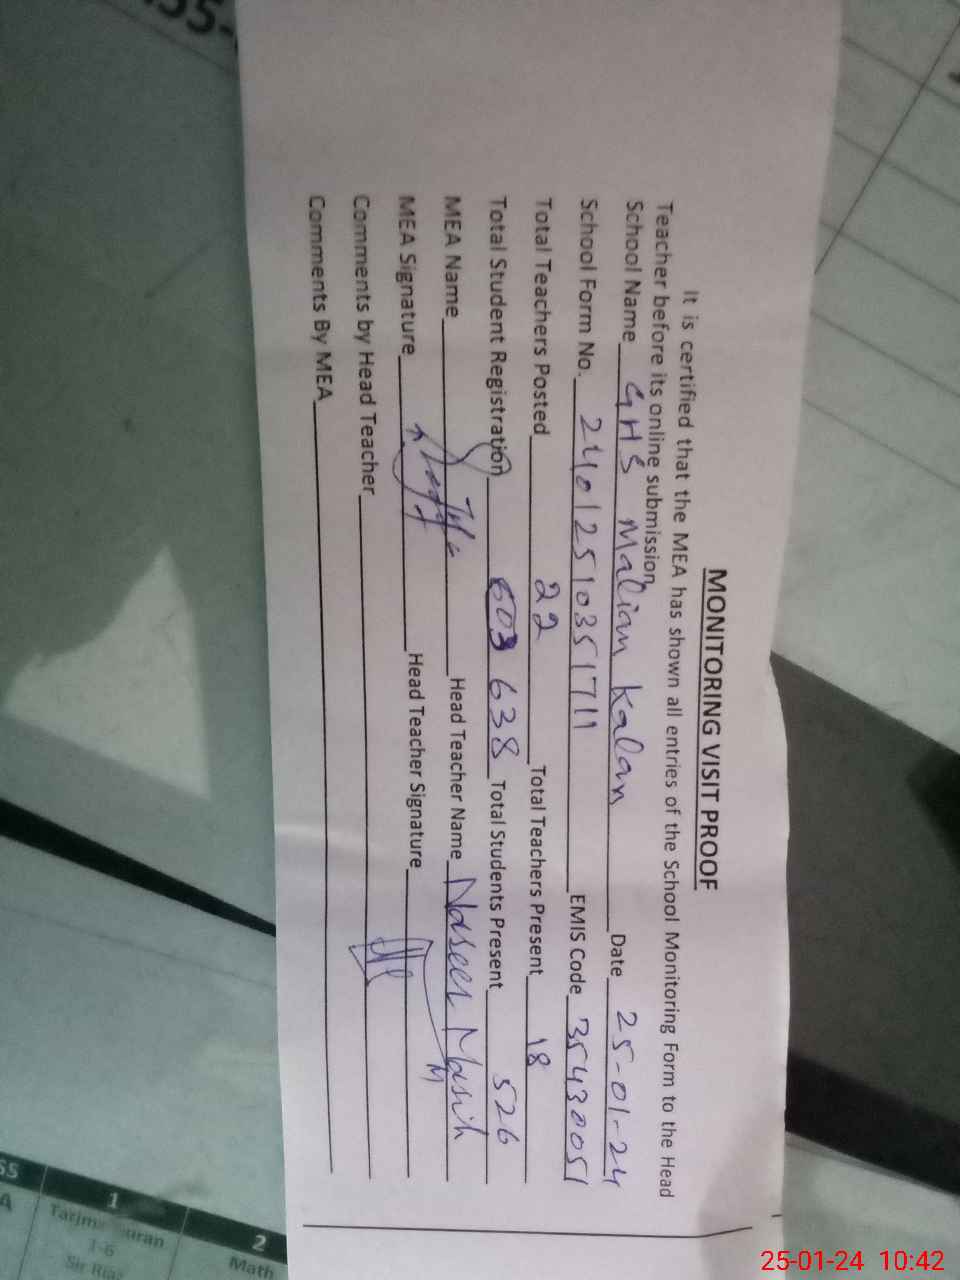 MONITORING VISIT PROOF
It is certified that the MEA has shown all entries of the School Monitoring Form to the Head
Teacher before its online submission.
School Name GHS Malian Kalan Date 25-01-24
School Form No. 24012510351711 EMIS Code 35430051
Total Teachers Posted 22 Total Teachers Present 18
Total Student Registration 603 638 Total Students Present 526
MEA Name Head Teacher Name Naseer Masih
MEA Signature Head Teacher Signature
Comments by Head Teacher
Comments By MEA
1 2
Math
25-01-24 10:42